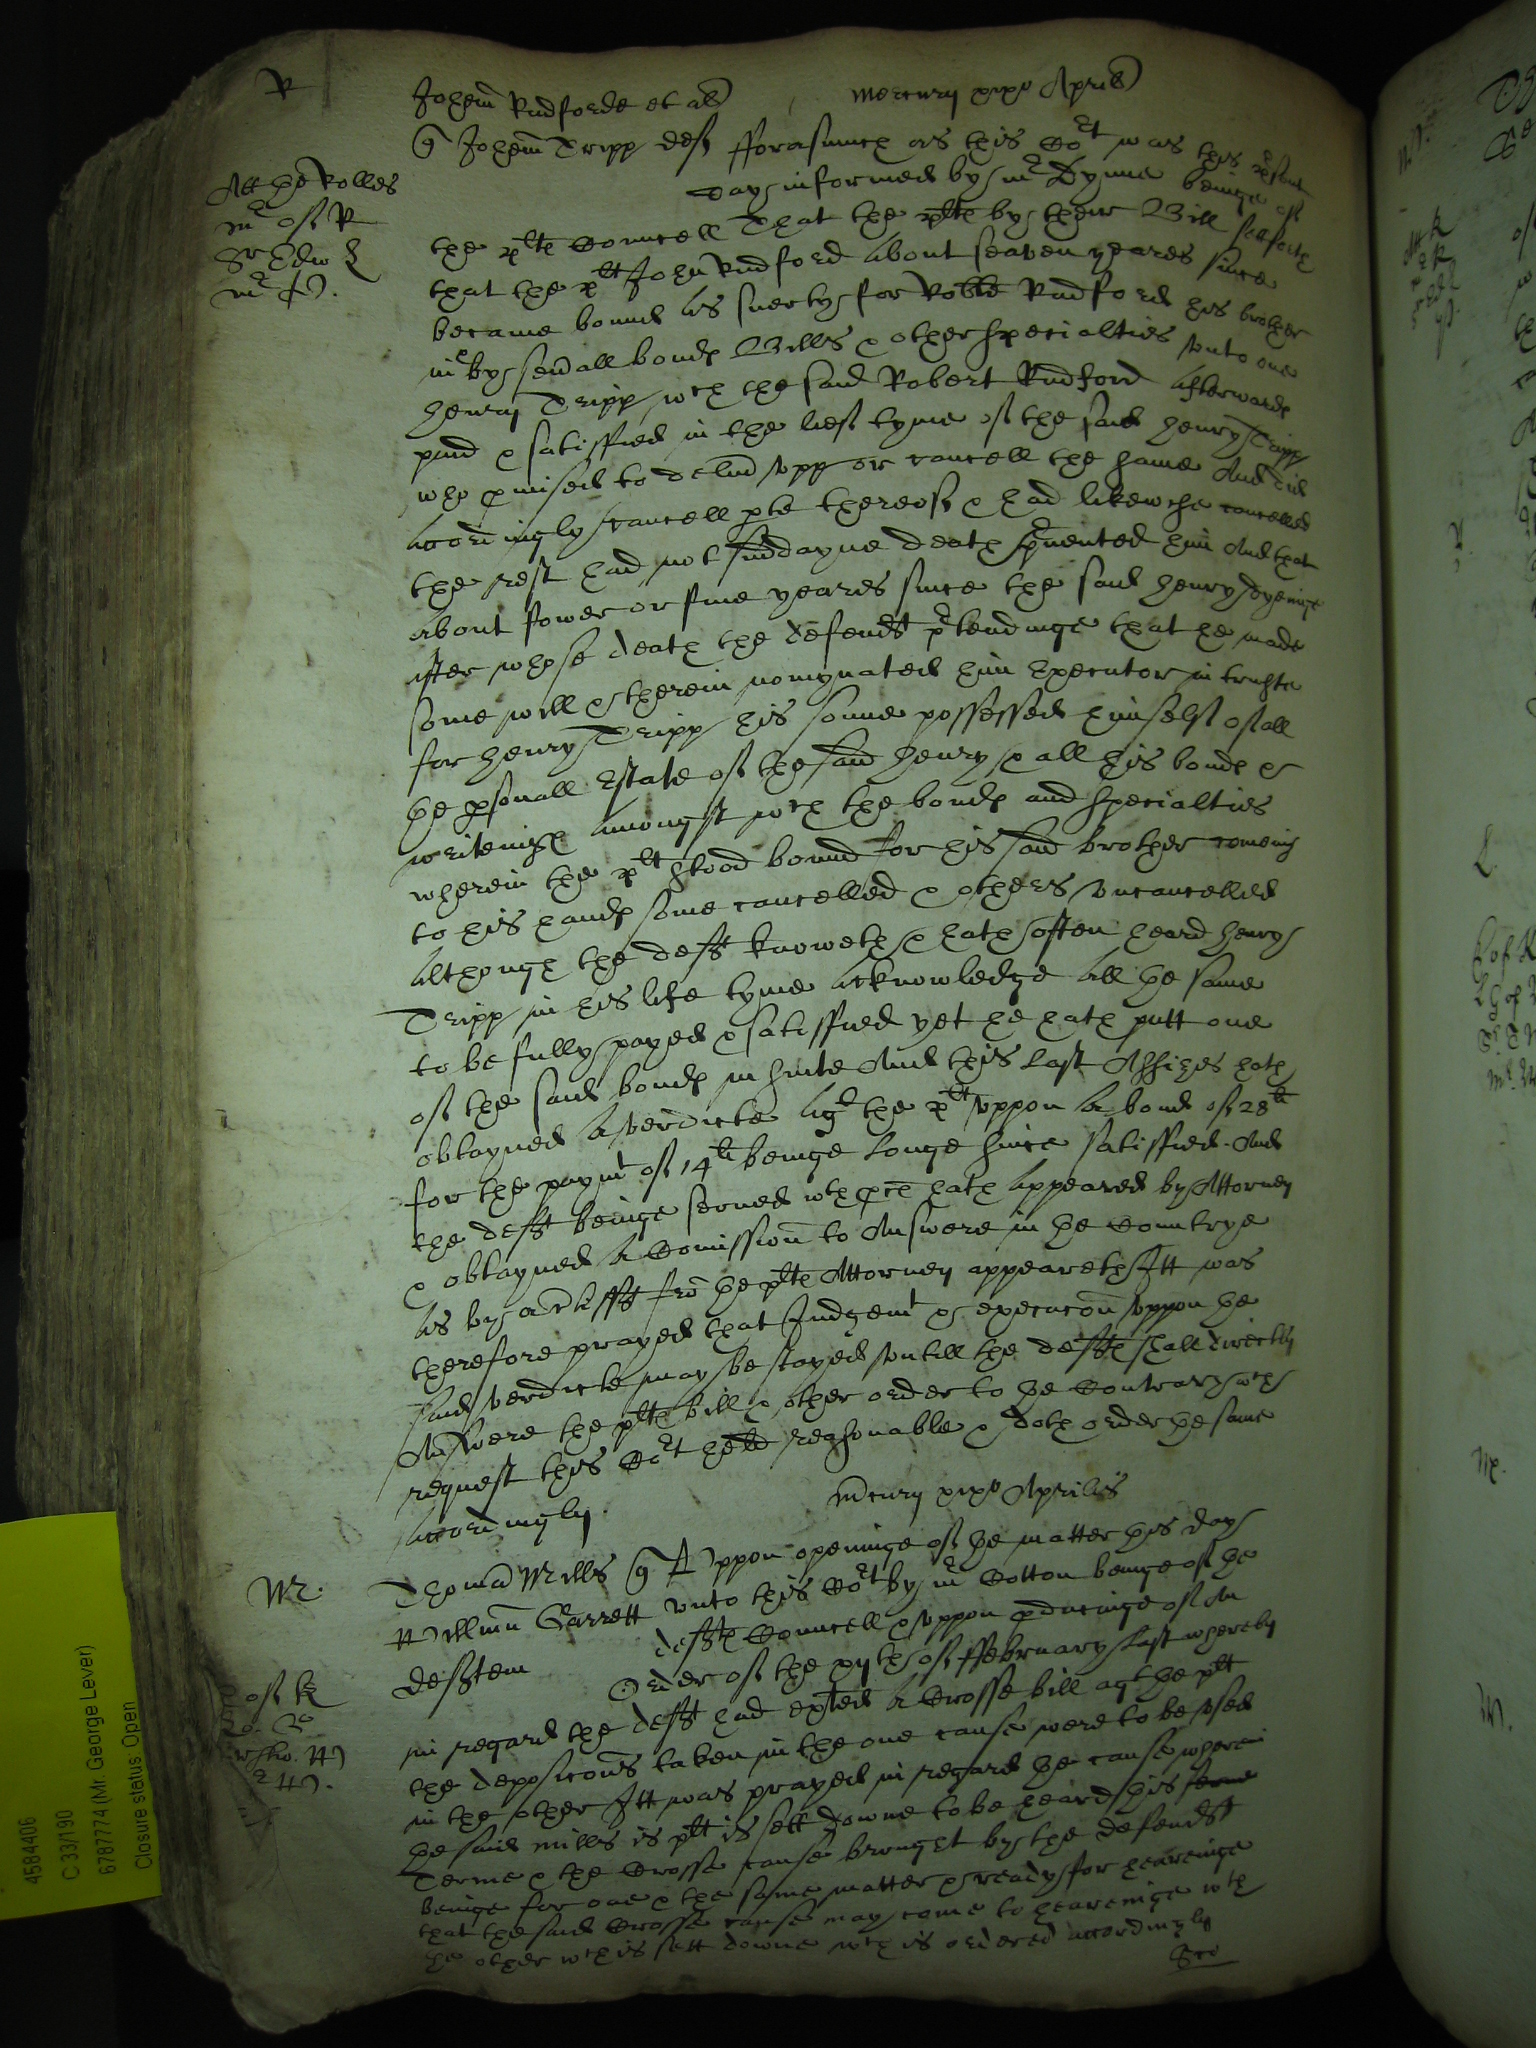 R
Johem Rudforde et al
Mercurij xixo Aprilis
Johem Tripp def fforasmuch as this Cort was this psent
Att the Rolles
day informed by mr Dynne beinge of
mr of R
the plts Councell That the plts by their Bill sett forth
Sr Edw
that the plt John Rudford about seaven yeares since
became bound as suerty for Robte Rudford his brother
by sevall bonds Bills & other specialties vnto one
Henry Tripp wch the said Robert Rudford afterwards
paid & satisfied in the lief tyme of the said Henry Tripp
who pmised to delivr vpp or cancell the same And did
accordingly cancell pte thereof & had likewise cancelled
the rest had not suddayne death pvented him And that
about fower or five yeares since the said Henry dyeinge
after whose death the defendt ptendinge that he made
some will & therein nomynated him Executor in truste
for Henry Tripp his sonne possessed himself of all
the psonall Estate of the said Henry & all his bonds &
writeings amongst wch the bonds and specialties
wherein the plt stood bound for his said brother comeing
to his hands some cancelled & others vncancelled
Although the deft knoweth & hath often heard Henry
Tripp in his life tyme acknowledge all the same
to be fully payed & satisfied yet he hath putt one
of the said bonds in suite And this last Assizes hath
obtayned a verdicte agt the plt vppon a bond of 28li
for the paymt of 14li beinge longe since satisfied. And
the deft beinge served wth pces hath appeared by Attorney
& obtayned a Comission to Answere in the Countrye
as by a certifft from the plts Attorney appeareth Itt was
therefore prayed that Judgemt & execucon vppon the
said verdicte may be stayed vntill the defts shall directly
Answere the plts bill & other order to the Contrary wch
request this Cort held reasonable & doth order the same
accordingly.
Mercurij xixo Aprilis
M.
Thomas Mills Vppon openinge of the matter this day
Willim Garrett vnto this Cort by mr Cotton beinge of the
defts Councell & vppon pducinge of An
deftem Order of the xijth of ffebruary last whereby
of R
in regard the deft had exhited a Crosse bill agt the plt
the deposicons taken in the one cause were to be vsed
in the other Itt was prayed in regard the cause wherein
the said Mills is plt is sett downe to be heard this
Terme & the Crosse cause brought by the defendt
beinge for one & the same matter & ready for heareinge
that the said Crosse cause may come to heareinge wth
the other wch is sett downe wch is ordered accordingly
4584406
C 33/190
6787774 (Mr. George Lever)
Closure status: Open